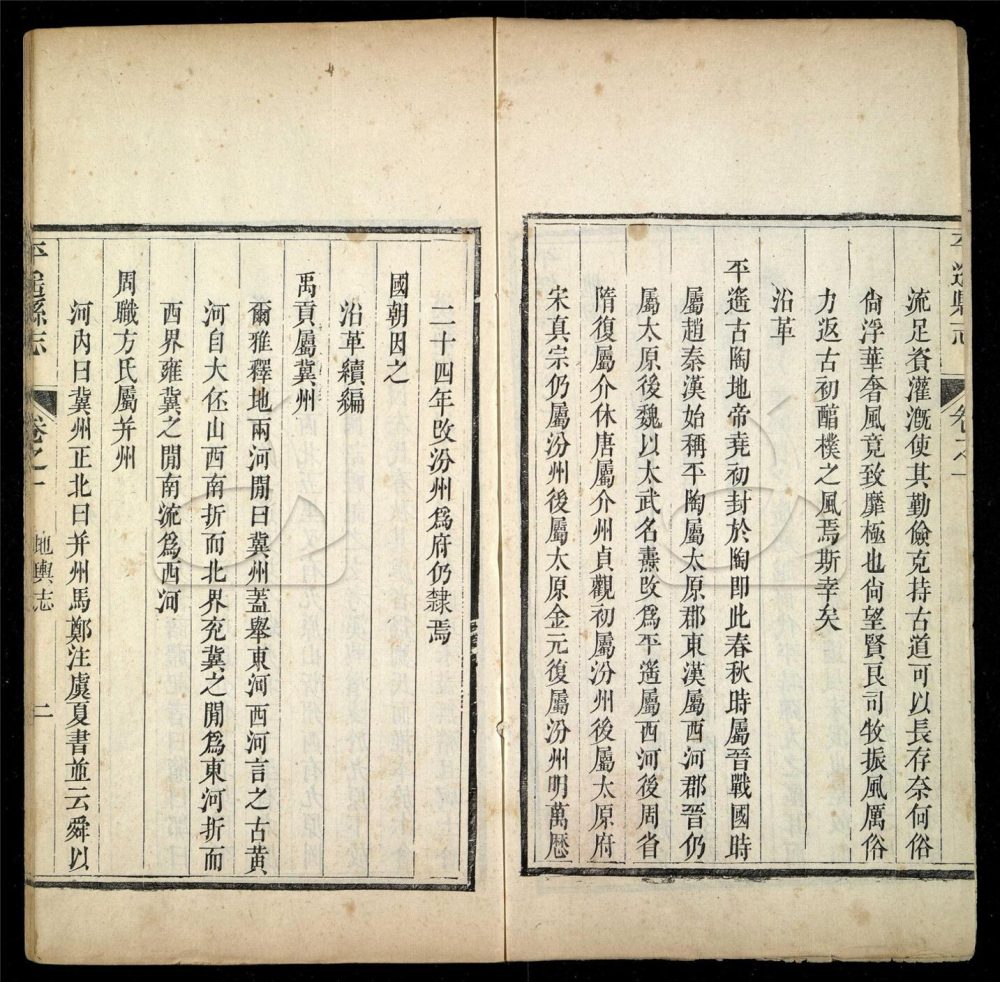 平遙縣志
卷之一
流足資灌漑使其勤儉克持古道可以長存奈何俗
尙浮華奢風竟致靡極也尙望賢良司牧振風厲俗
力返古初醕樸之風焉斯幸矣
沿革
平遙古陶地帝堯初封於陶即此春秋時屬晉戰國時
屬趙秦漢始稱平陶屬太原郡東漢屬西河郡晉仍
屬太原後魏以太武名燾改爲平遙屬西河後周省
隋復屬介休唐屬介州貞觀初屬汾州後屬太原府
宋真宗仍屬汾州後屬太原金元復屬汾州明萬歷
二十四年改汾州爲府仍隸焉
國朝因之
沿革續編
禹貢屬冀州
爾雅釋地兩河閒曰冀州蓋舉東河西河言之古黃
河自大伾山西南折而北界兖冀之閒爲東河折而
西界雍冀之閒南流爲西河
周職方氏屬并州
河內曰冀州正北曰并州馬鄭注虞夏書並云舜以
平遙縣志
卷之一
地輿志
二